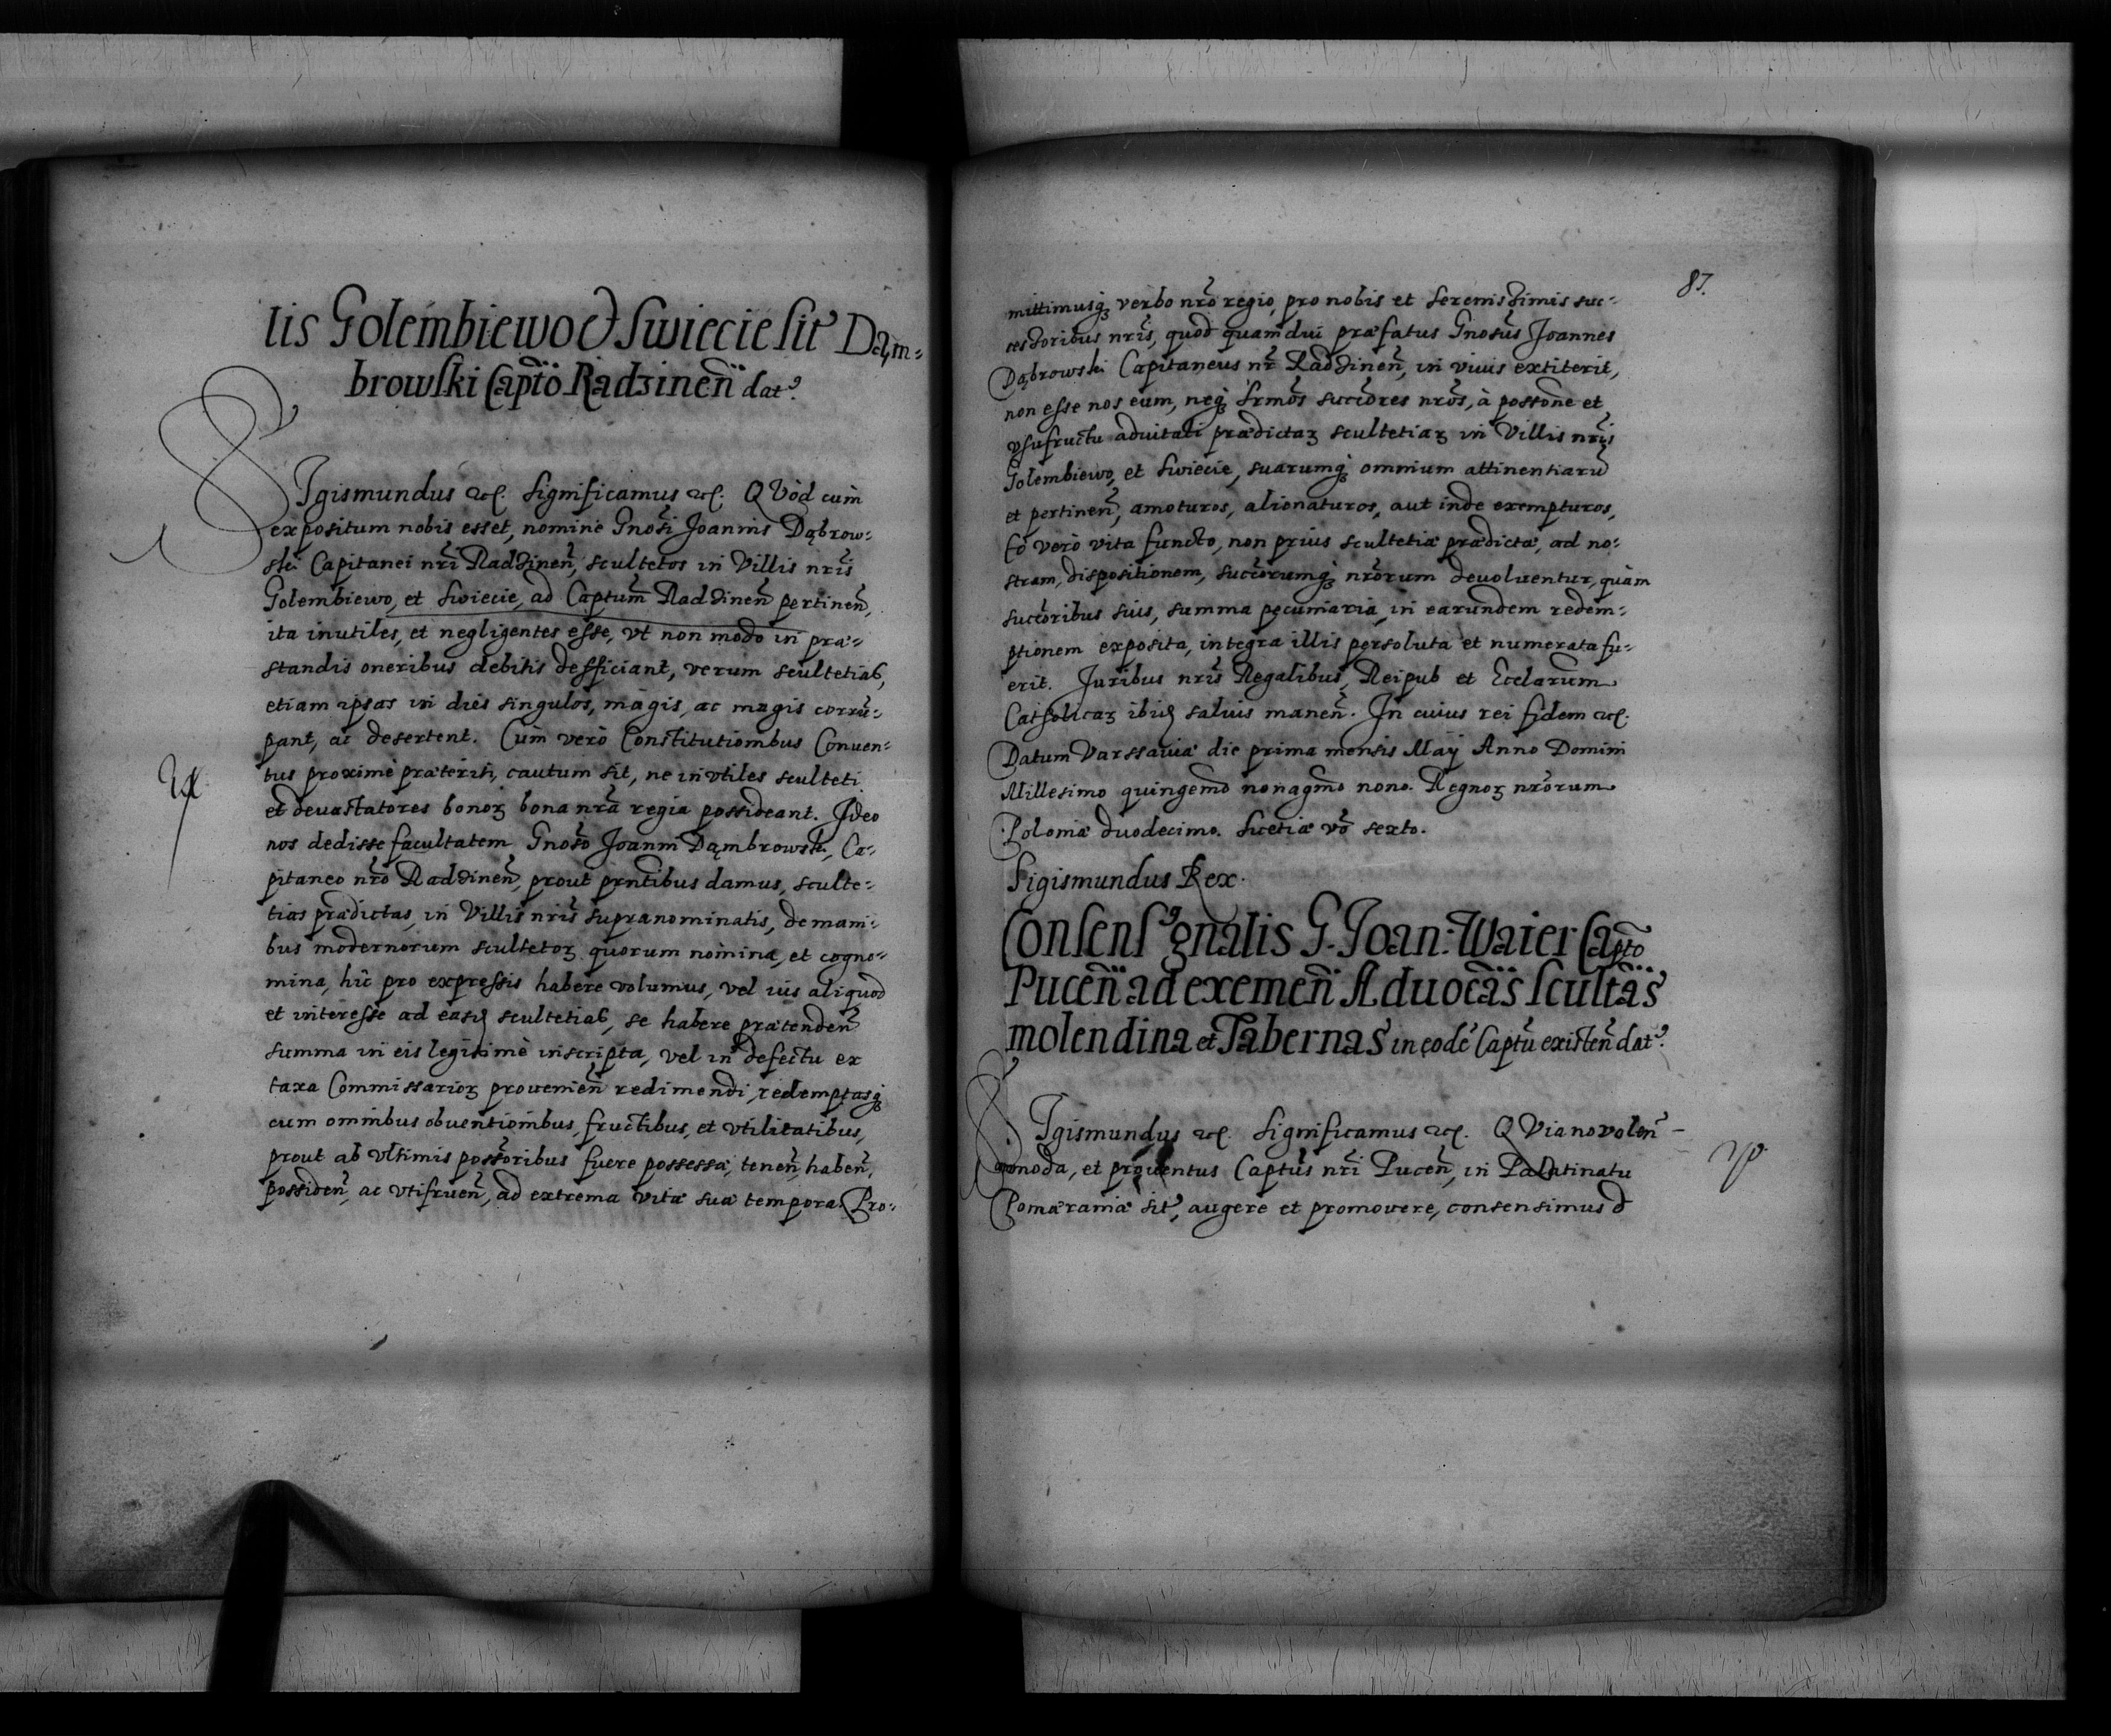 lis Golembiewo & Swiecie sit Dąm-
browski Capto Radzinen dat.
SIgismundus etc. Significamus etc. QVòd cum
expositum nobis esset, nomine Gnosi Joannis Dąbrow-
ski Capitanei nri Radzinen, scultetos in Villis nris
Golembiewo, et Swiecie, ad Captum Radzinen pertinen,
ita inutiles, et negligentes esse, vt non modo in præ-
standis oneribus debitis defficiant, verum scultetias,
etiam ipsas in dies singulos, magis, ac magis corrũ-
pant, ac desertent. Cùm verò Constitutionibus Conuen-
tus proximè præteriti, cautum sit, ne invtiles sculteti
et deuastatores bonoꝝ bona nra regia possideant. Ideo
nos dedisse facultatem Gnoso Joanni Dąmbrowski, Ca-
pitaneo nro Radzinen, prout prntibus damus, sculte-
tias prædictas, in Villis nris supranominatis, de mani-
bus modernorum scultetoꝝ quorum nomina, et cogno-
mina, hîc pro expressis habere volumus, vel ius aliquod
et interesse ad easd scultetias, se habere prætenden
summa in eis legitimè inscripta, vel in defectu ex
taxa Commissarioꝝ prouenien redimendi, redemptasqꝫ
cum omnibus obuentionibus, fructibus, et vtilitatibus,
prout ab vltimis possoribus fuere possessa, tenen, haben,
possiden, ac vtifruen, ad extrema vitæ suæ tempora. Pro-
87.
mittimusqꝫ verbo nro regio, pro nobis et Serenissimis suc-
cessoribus nris, quòd quamdui præfatus Gnosus Joannes
Dąbrowski Capitaneus nr Radzinen, in viuis extiterit,
non esse nos eum, neqꝫ Srmos succores nros, à possone et
vsufructu aduitali prædictaꝝ scultetiaꝝ in Villis nris
Golembiewo, et Swiecie, suarumqꝫ omnium attinentiarũ
et pertinen, amoturos, alionaturos, aut inde exempturos,
Eo verò vita functo, non prius scultetiæ prædictæ, ad no-
stram, dispositionem, succorumqꝫ nrorum deuoluentur, quàm
succoribus suis, summa pecuniaria, in earundem redem-
ptionem exposita, integra illis persoluta et numerata fu-
erit. Juribus nris Regalibus, Reipub et Ecclarum
Catholicaꝝ ibid saluis manen. In cuius rei fidem etc.
Datum Varssauiæ die prima mensis Maÿ Anno Domini
Millesimo quingemo nonagmo nono. Regnoꝝ nrorum
Poloniæ duodecimo. Suetiæ vo sexto.
Sigismundus Rex.
Consensꝰ gnalis G. Joan: Waier Capto
Pucen ad exemen Aduocas Scultas
molendina et Tabernas in eodẽ Captu existen dat.
SIgismundus etc. Significamus etc. QVia no volen-
et prouentus Captus nri Pucen, in Palatinatu
Pomæraniæ sit, augere et promouere, consensimus